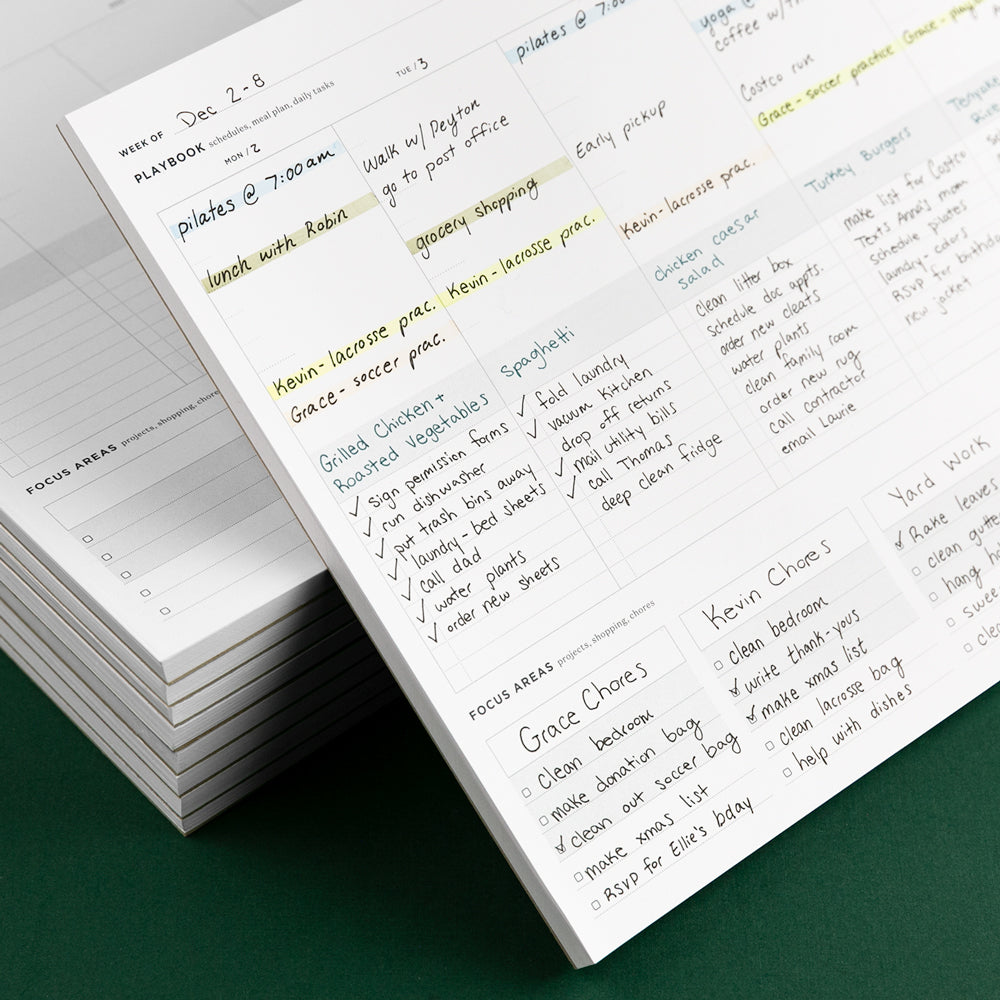 WEEK OF Dec 2-8
PLAYBOOK schedules, meal plan, daily tasks
MON / 2
pilates @ 7:00am
lunch with Robin
Kevin- lacrosse prac.
Grace- soccer prac.
Grilled Chicken +
Roasted Vegetables
sign permission forms
run dishwasher
put trash bins away
laundry-bed sheets
call dad
water plants
order new sheets
TUE / 3
Walk w/ Peyton
go to post office
grocery shopping
Kevin-lacrosse prac.
Spaghetti
fold laundry
vacuum kitchen
drop off returns
mail utility bills
call Thomas
deep clean fridge
pilates @ 7:00
Early pickup
Kevin-lacrosse prac.
chicken caesar
salad
clean litter box
schedule doc appts.
order new cleats
water plants
clean family room
order new rug
call contractor
email Laurie
yoga @
coffee w/
Costco run
Grace- soccer practice
Turkey Burgers
make list for Costco
Texts Anna's mom
schedule plates
laundry- colors
RSVP for
new jacket
Grace-
FOCUS AREAS projects, shopping, chores
Grace Chores
clean bedroom
make donation bag
clean out soccer bag
make xmas list
RSVP for Ellie's bday
Kevin Chores
clean bedroom
write thank-yous
make xmas list
clean lacrosse bag
help with dishes
Yard Work
Rake leaves
clean
hang
FOCUS AREAS projects, shopping,